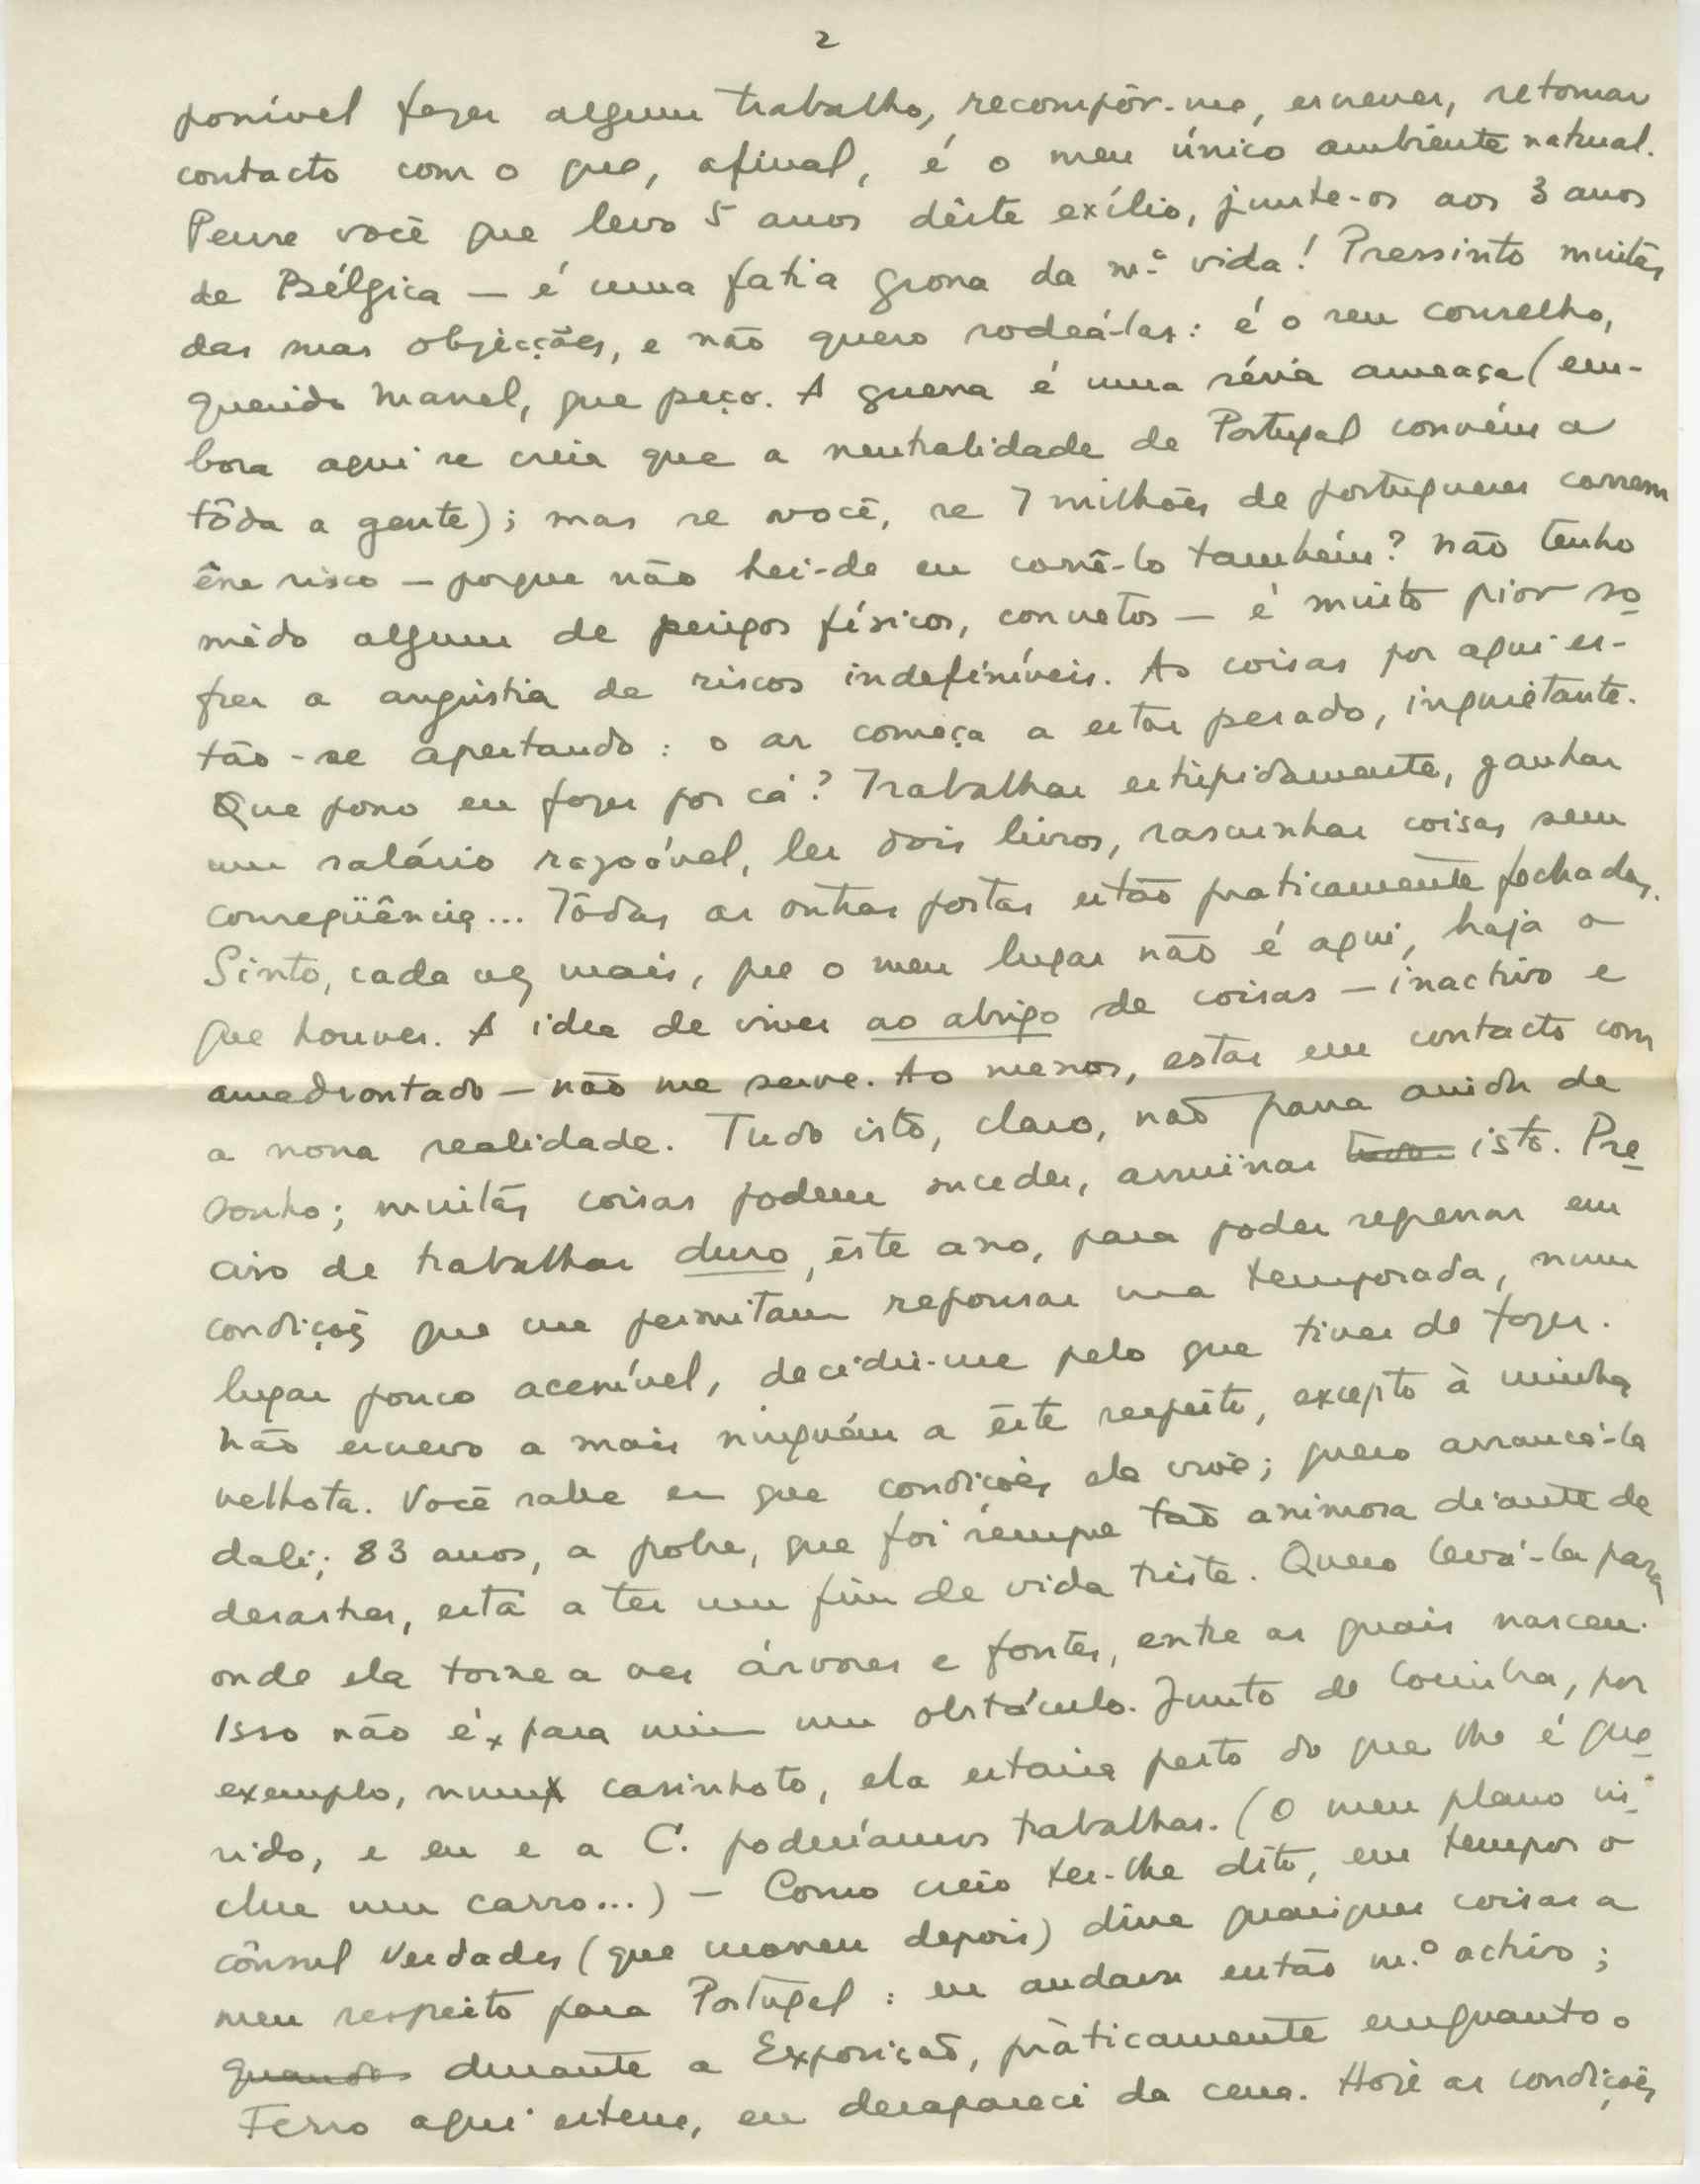 2
ponível fazer algum trabalho, recompôr-me, escrever, retomar
contacto com o que, afinal, é o meu único ambiente natural.
Pense você que levo 5 anos dêste exílio, junte-os aos 3 anos
de Bélgica — é uma fatia grossa da m.ª vida! Pressinto muitas
das suas objecções, e não quero rodeá-las: é o seu conselho,
querido Manel, que peço. A guerra é uma séria ameaça (em-
bora aqui se creia que a neutralidade de Portugal convém a
tôda a gente); mas se você, se 7 milhões de portugueses correm
êsse risco — porque não hei-de eu corrê-lo também? Não tenho
mêdo algum de perigos físicos, concretos — é muito pior so-
frer a angústia de riscos indefiníveis. As coisas por aqui es-
tão-se apertando: o ar começa a estar pesado, inquietante.
Que posso eu fazer por cá? Trabalhar estùpidamente, ganhar
um salário razoável, ler dois livros, rascunhar coisas sem
conseqüência... Tôdas as outras portas estão praticamente fechadas.
Sinto, cada vez mais, que o meu lugar não é aqui, haja o
que houver. A idea de viver ao abrigo de coisas — inactivo e
amedrontado — não me serve. Ao menos, estar em contacto com
a nossa realidade. Tudo isto, claro, não passa ainda de
sonho; muitas coisas podem suceder, arruïnar isto. Pre-
ciso de trabalhar duro, êste ano, para poder regressar em
condições que me permitam repousar uma temporada, num
lugar pouco acessível, decidir-me pelo que tiver de fazer.
Não escrevo a mais ninguém a êste respeito, excepto à minha
velhota. Você sabe em que condições ela vive; quero arrancá-la
dali; 83 anos, a pobre, que foi sempre tão animosa diante de
desastres, está a ter um fim de vida triste. Quero levá-la para
onde ela torne a ver árvores e fontes, entre as quais nasceu.
Isso não é, para mim um obstáculo. Junto de Coimbra, por
exemplo, num casinhoto, ela estaria perto do que lhe é que-
rido, e eu e a C. poderíamos trabalhar. (O meu plano in-
clue um carro...) — Como creio ter-lhe dito, em tempos o
cônsul Verdades (que morreu depois) disse quaisquer coisas a
meu respeito para Portugal: eu andava então m.º activo;
quando durante a Exposição, pràticamente emquanto o
Ferro aqui esteve, eu desapareci da cena. Hoje as condições